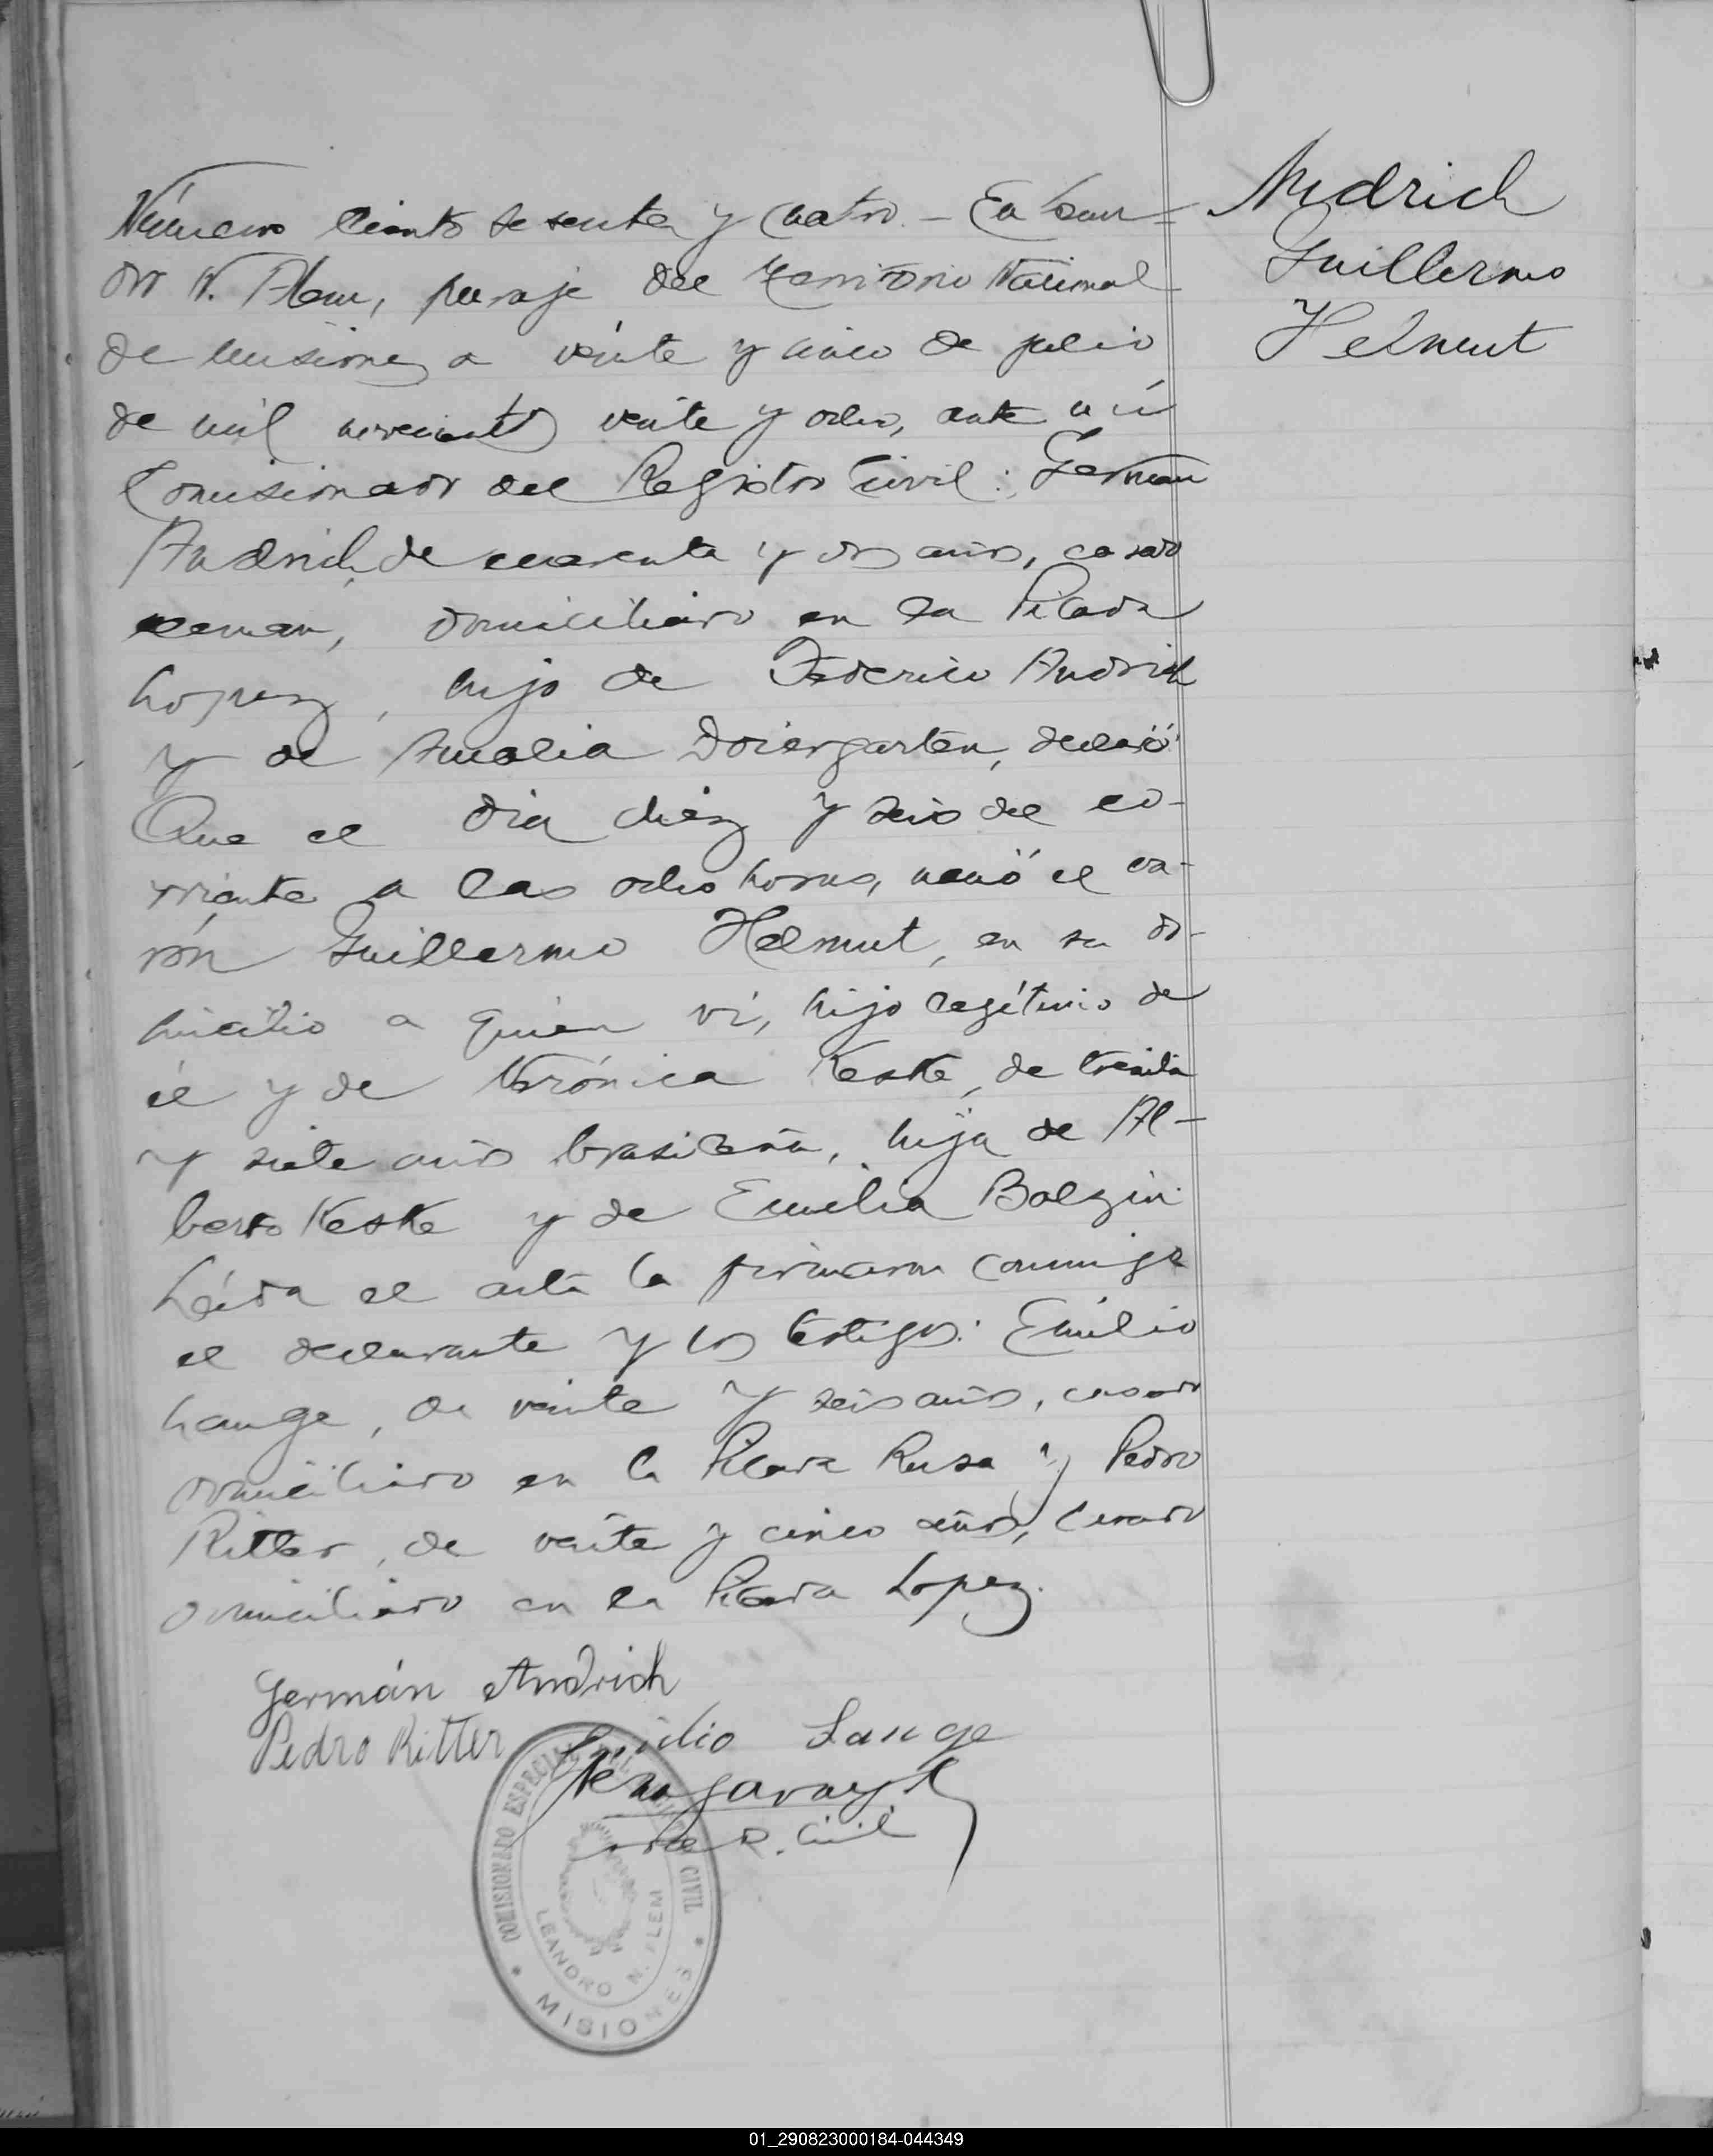 Andrich
Guillermo
Helmut
Número ciento sesenta y cuatro. – En Lean-
dro N. Alem, paraje del Territorio Nacional
de Misiones, a veinte y cinco de julio
de mil novecientos veinte y ocho, ante mí
Comisionado del Registro Civil: German
Andrich, de cuarenta y dos años, casado
aleman, domiciliado en la Picada
Lopez, hijo de Federico Andrich
y de Amalia Doiergarten, declaró:
Que el dia diez y seis del co-
rriente a las ocho horas, nació el va-
rón Guillermo Helmut, en su do-
micilio a quien ví, hijo legítimo de
él y de Verónica Keske, de treinta
y siete años brasileña, hija de Al-
berto Keske y de Emilia Bolzin.
Leída el acta la firmaron conmigo
el declarante y los testigos: Emilio
Lange, de veinte y seis años, casado
domiciliado en la Picada Rusa y Pedro
Ritter, de veinte y cinco años, casado
domiciliado en la Picada Lopez.
Germán Andrich
Pedro Ritter Emilio Lange
R. Civil
COMISIONADO ESPECIAL DEL REGISTRO CIVIL
LEANDRO N. ALEM
* MISIONES *
01_290823000184-044349